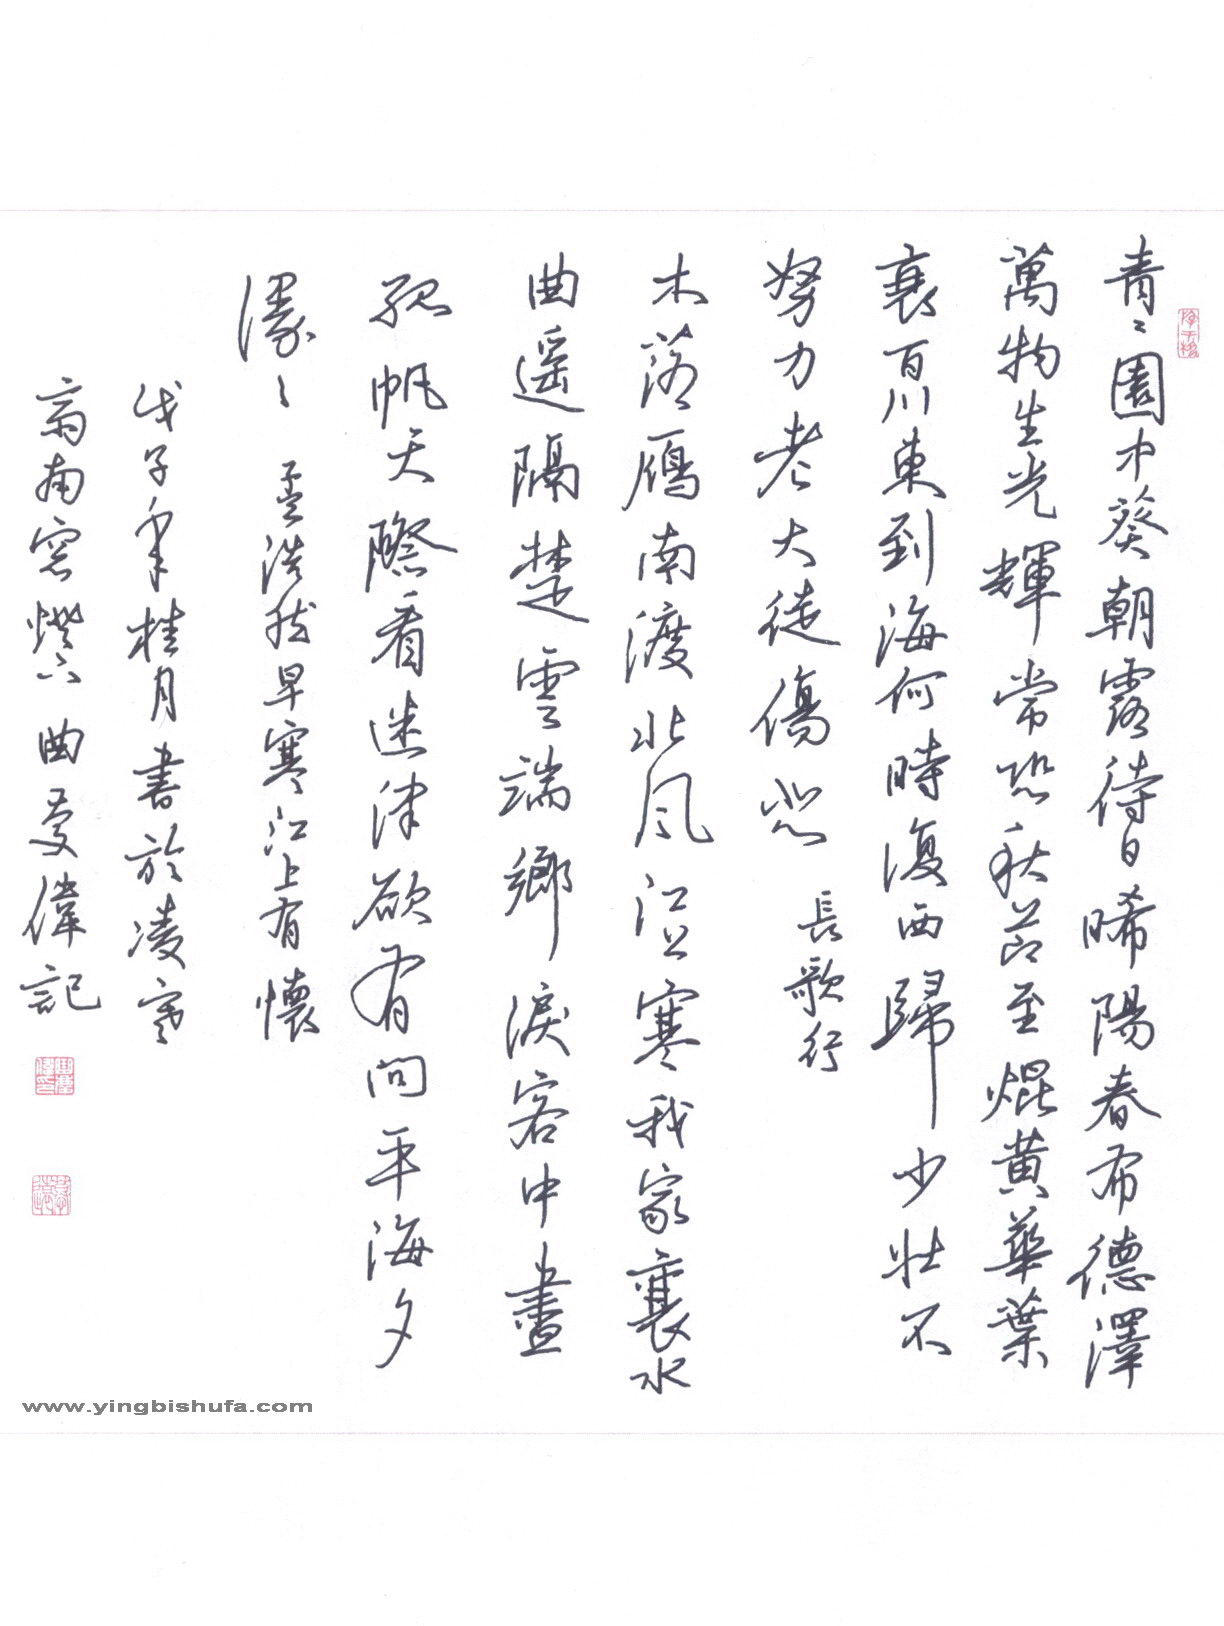 青〻園中葵朝露待日晞陽春布德澤
萬物生光輝常恐秋節至焜黃華葉
衰百川東到海何時復西歸少壯不
努力老大徒傷悲 長歌行
木落雁南渡北風江上寒我家襄水
曲遥隔楚雲端鄉淚客中盡
孤帆天際看迷津欲有問平海夕
漫〻 孟浩然早寒江上有懷
戊子年桂月書於凌寒
齋南窓燈下 曲慶偉記
www.yingbishufa.com